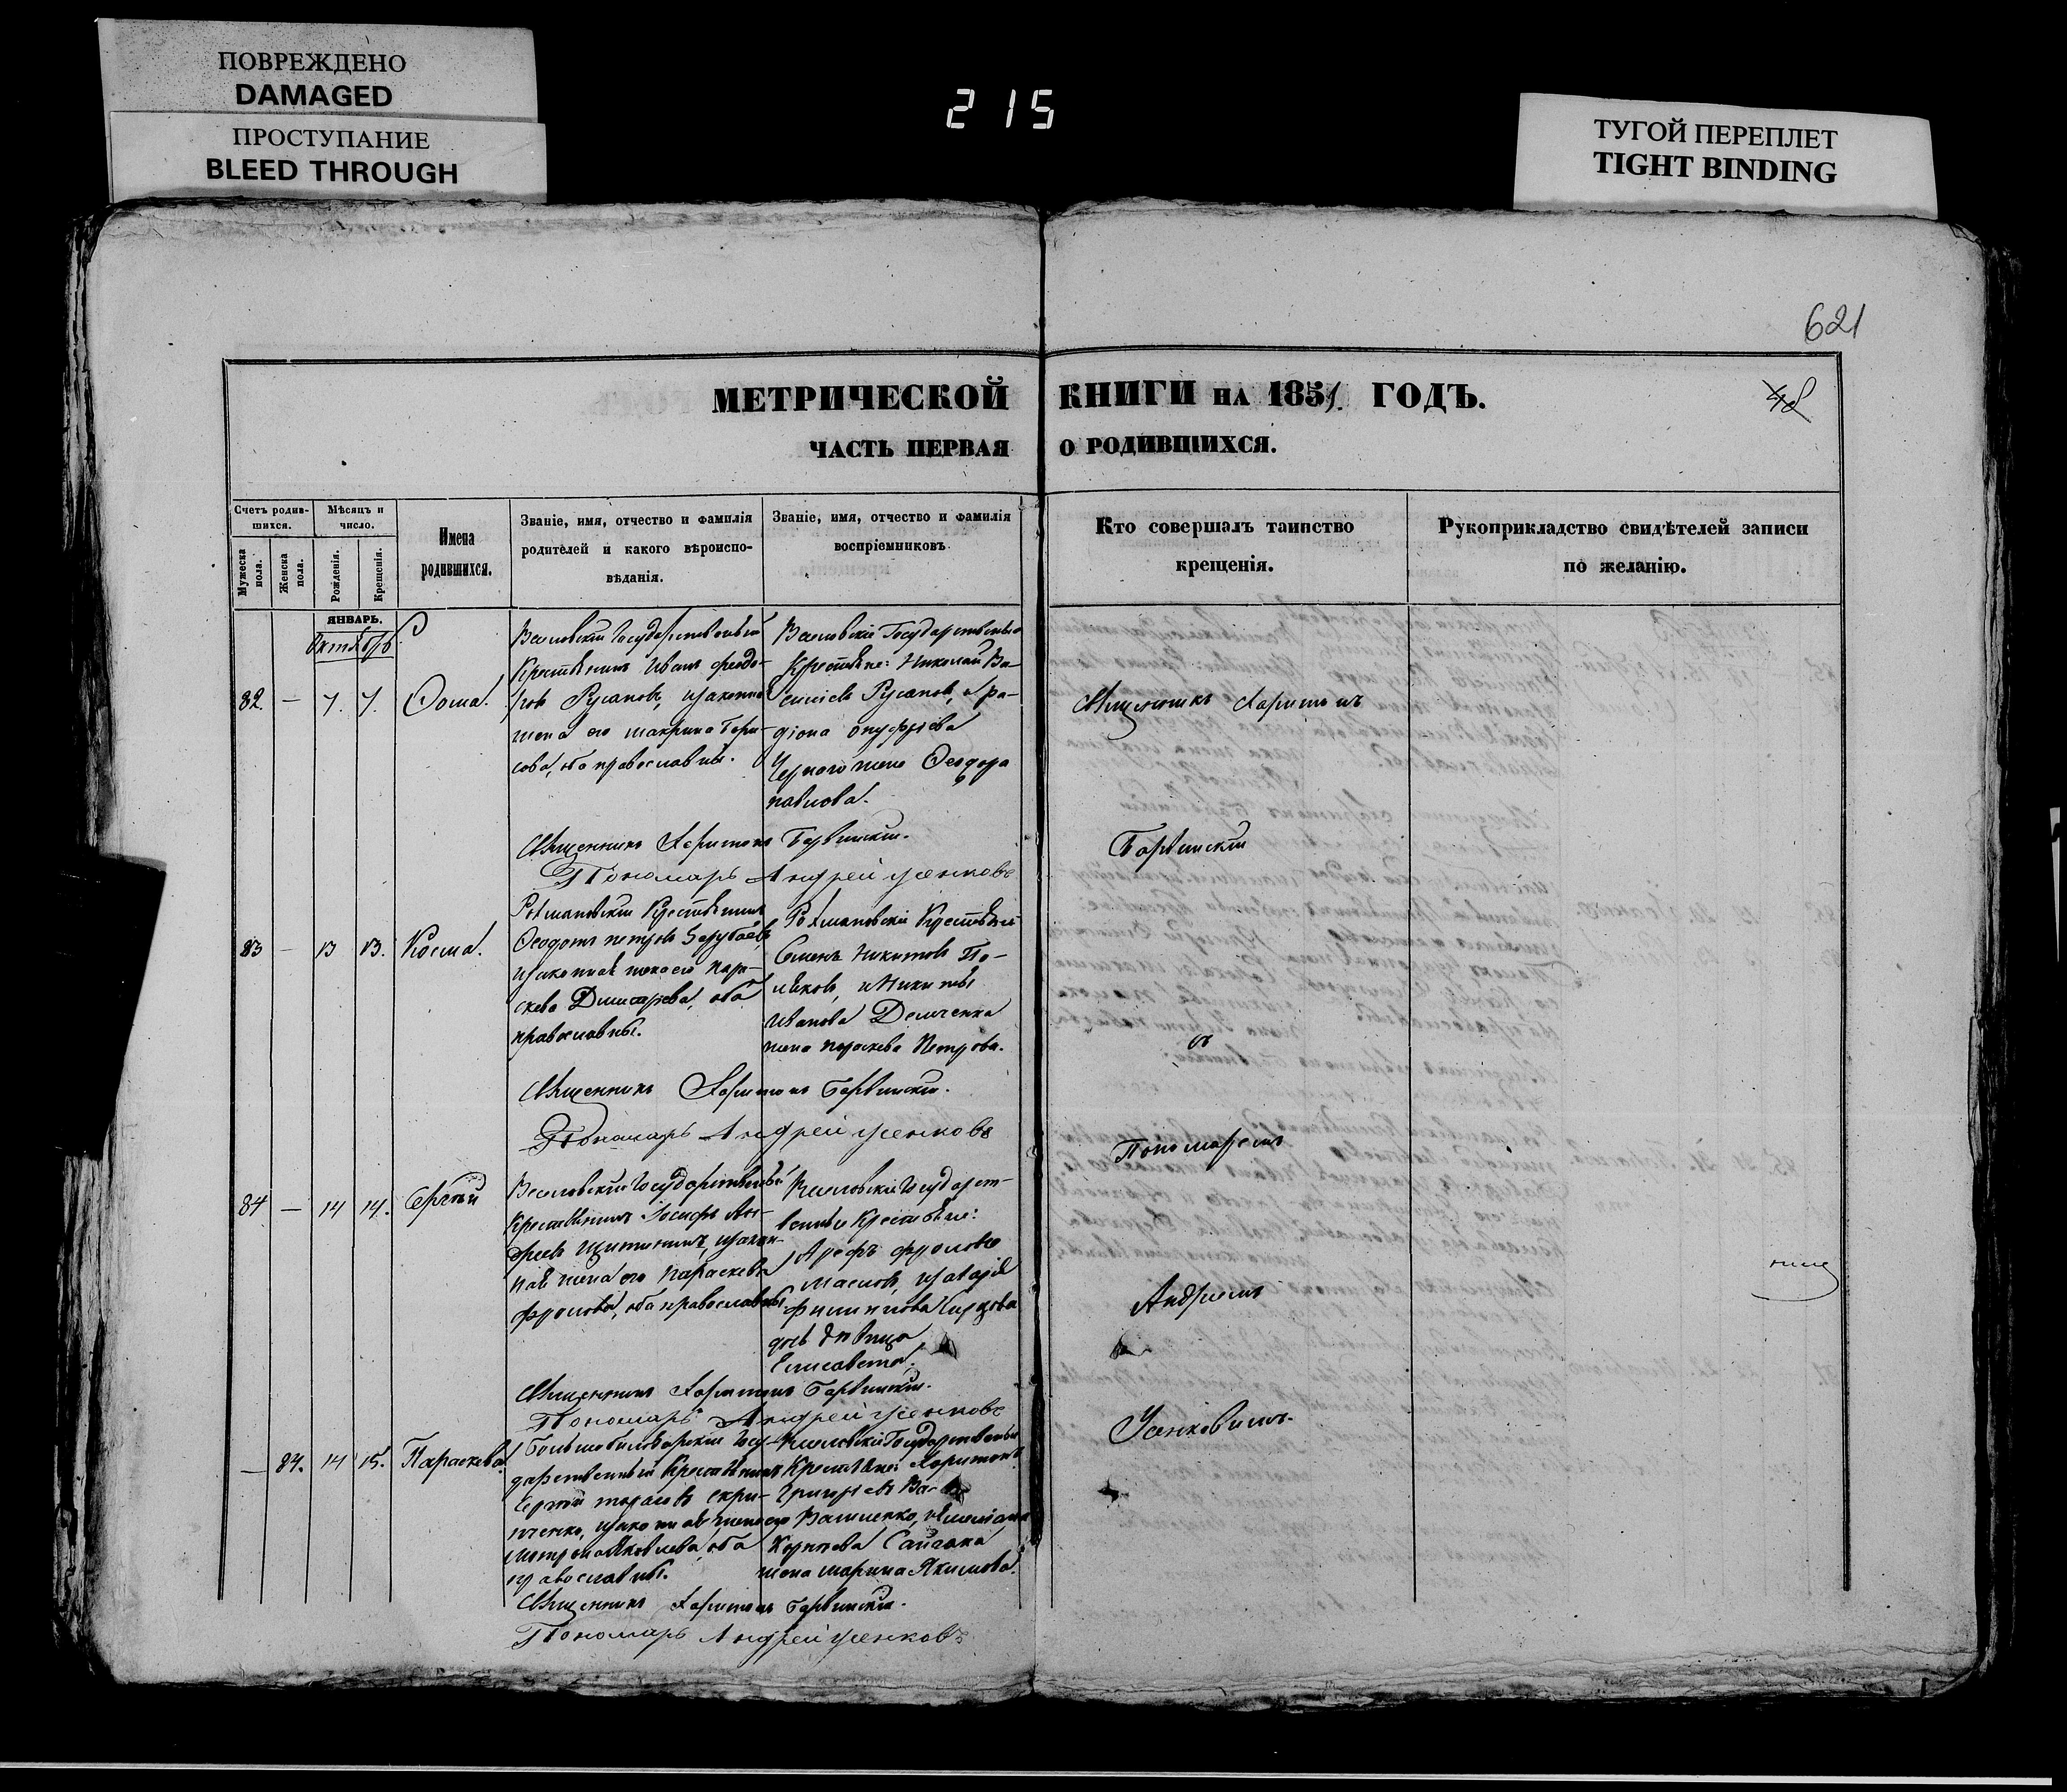 ПОВРЕЖДЕНО
DAMAGED
ПРОСТУПАНИЕ
BLEED THROUGH
215
ТУГОЙ ПЕРЕПЛЕТ
TIGHT BINDING
621
МЕТРИЧЕСКОЙ КНИГИ НА 1851. ГОДЪ.
48
ЧАСТЬ ПЕРВАЯ О РОДИВШІИХСЯ.
Счетъ родив-
шихся.
Мужеска
пола.
Женска
пола.
Мѣсяцъ и
число.
Рожденія.
Крещенія.
Имена
родившихся.
Званіе, имя, отчество и фамилія
родителей и какого вѣроиспо-
вѣданія.
Званіе, имя, отчество и фамилія
воспріемниковъ.
Кто совершалъ таинство
крещенія.
Рукоприкладство свидѣтелей записи
по желанію.
ЯНВАРЬ.
Октябрь.
82 — 7. 7. Ѳома.
Государственный
Крестьянинъ Иванъ Феодо-
ровъ Русановъ, и законная
жена его Макрина Бори-
сова, оба православны.
Государственные
Крестьяне: Николай Ва-
сильевъ Русановъ, и Ра-
діона Онуфріева
Чернаго жена Ѳеодора
Павлова.
Священникъ Харитонъ Барвинскій.
Пономарь Андрей Усенковъ
83 — 13 13. Косма.
Крестьянинъ
Ѳеодотъ Петровъ
и законная жена его Пара-
скева Димитріева, оба
православны.
Крестьяне
Семенъ Никитовъ По-
ляковъ, и Никиты
Иванова Демченка
жена Параскева Петрова.
Священникъ Харитонъ Барвинскій.
Пономарь Андрей Усенковъ
84 — 14 14. Сергѣй
Государственный
Крестьянинъ Іосифъ Ан-
дреевъ Щитининъ, и закон-
ная жена его Параскева
Фролова, оба православны.
Государст-
венные Крестьяне:
Арефъ Фроловъ
Масловъ, и
Филиппова
дочь дѣвица
Елисавета.
Священникъ Харитонъ Барвинскій.
Пономарь Андрей Усенковъ
— 84. 14 15. Параскева.
Госу-
дарственный Крестьянинъ
Сергѣй
и законная жена его
Матрона Яковлева, оба
православны.
Государственные
Крестьяне: Харитонъ
Григорьевъ Ва-
Василенко, и
Карпова Сайгака
жена Марина Якимова.
Священникъ Харитонъ Барвинскій.
Пономарь Андрей Усенковъ
Священникъ Харитонъ
Барвинскій
съ
Пономаремъ
Андреемъ
Усенковымъ.